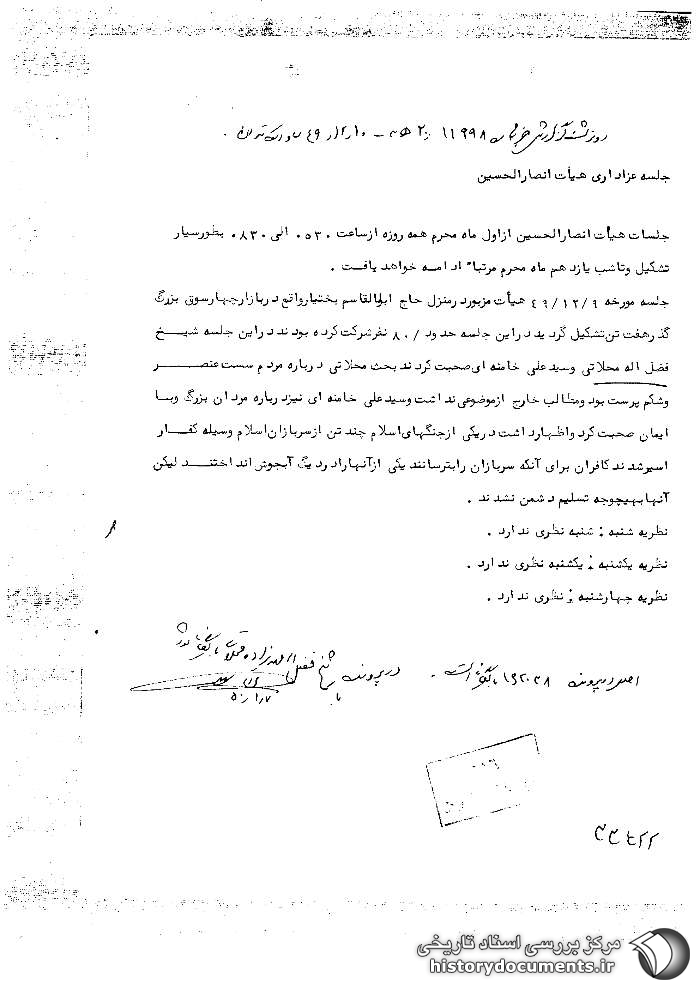 رونوشت گزارش خبر ۱۱۹۹۸
جلسه عزاداری هیأت انصارالحسین
جلسات هیأت انصارالحسین ازاول ماه محرم همه روزه ازساعت ۰۵۳۰ الی ۰۸۳۰ بطورسیار
تشکیل وتاشب یازدهم ماه محرم مرتبا" ادامه خواهد یافت .
جلسه مورخه ۴۹/۱۲/۹ هیأت مزبوردرمنزل حاج ابوالقاسم بختیارواقع دربازارچهارسوق بزرگ
گذرهفت تن تشکیل گردید دراین جلسه حدود ۸۰/ نفرشرکت کرده بودند دراین جلسه شیخ
فضل اله محلاتی وسیدعلی خامنه ای صحبت کردند بحث محلاتی درباره مردم سست عنصر
وشکم پرست بود ومطالب خارج ازموضوعی نداشت وسیدعلی خامنه ای نیزدرباره مردان بزرگ وبا
ایمان صحبت کرد واظهارداشت دریکی ازجنگهای اسلام چند تن ازسربازان اسلام وسیله کفار
اسیرشدند کافران برای آنکه سربازان رابترسانند یکی ازآنهارادردیگ آبجوش انداختند لیکن
آنهابهیچوجه تسلیم دشمن نشدند .
نظریه شنبه : شنبه نظری ندارد .
نظریه یکشنبه : یکشنبه نظری ندارد .
نظریه چهارشنبه : نظری ندارد .
اصل درپرونده ۱۹۲۰۳۸ بایگانی است .
در پرونده شیخ فضل اله
۵۰/۱/۷
۳۳۴۲۲
مرکز بررسی اسناد تاریخی
historydocuments.ir